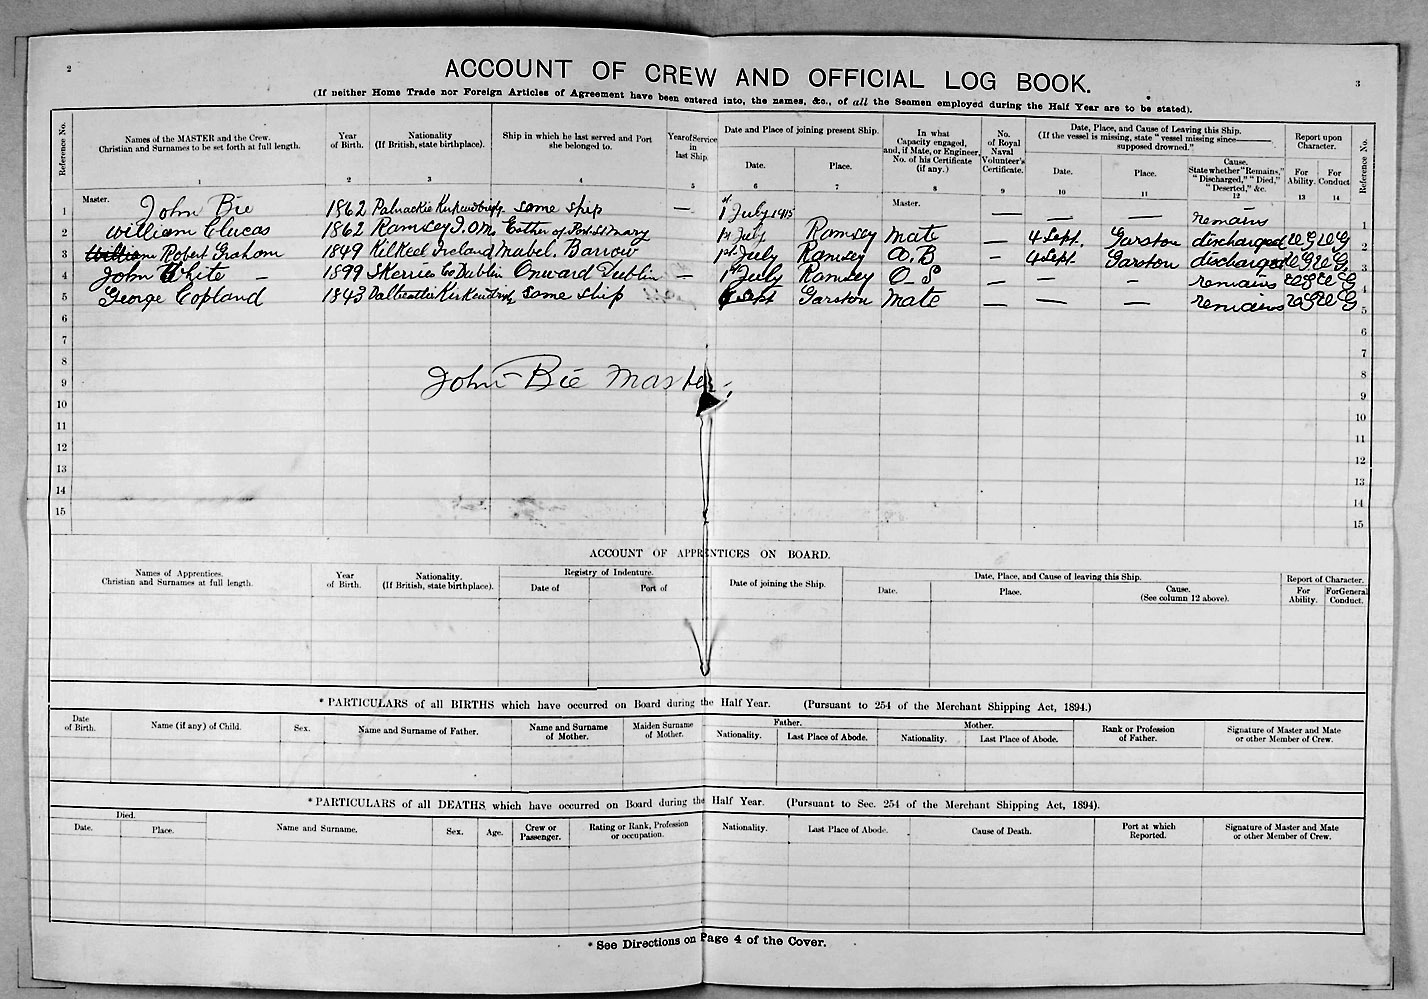 2
3
ACCOUNT OF CREW AND OFFICIAL LOG BOOK.
(If neither Home Trade nor Foreign Articles of Agreement have been entered into, the names, &c., of all the Seamen employed during the Half Year are to be stated).
Reference No.
Names of the MASTER and the Crew. Christian and Surnames to be set forth at full length. 1
Year of Birth. 2
Nationality (If British, state birthplace). 3
Ship in which he last served and Port she belonged to. 4
Year of Service in last Ship. 5
Date and Place of joining present Ship.
Date. 6
Place. 7
In what Capacity engaged, and, if Mate, or Engineer, No. of his Certificate (if any.) 8
No. of Royal Naval Volunteer's Certificate. 9
Date, Place, and Cause of Leaving this Ship. (If the vessel is missing, state "vessel missing since——— supposed drowned."
Date. 10
Place. 11
Cause. State whether "Remains," "Discharged," "Died," "Deserted," &c. 12
Report upon Character.
For Ability. 13
For Conduct 14
Reference No.
1 Master. John Bie 1862 Palnackie same ship — 1st July 1915 Master. — — — remains 1
2 William Clucas 1862 Ramsey I.O.M. Esther of Port St Mary 1st July Ramsey Mate — 4 Sept. Garston discharged VG VG 2
3 William Robert Graham 1849 Kilkeel Ireland Mabel. Barrow 1st July Ramsey A.B — 4 Sept. Garston discharged VG VG 3
4 John White — 1899 Skerries Co Dublin Onward Dublin — 1st July Ramsey O-S — — - remains VG VG 4
5 George Copland 1843 Dalbeattie same ship Sept Garston Mate — — — remains VG VG 5
6 6
7 7
8 8
9 9
John Bie Master.
10 10
11 11
12 12
13 13
14 14
15 15
ACCOUNT OF APPRENTICES ON BOARD.
Names of Apprentices. Christian and Surnames at full length.
Year of Birth.
Nationality. (If British, state birthplace).
Registry of Indenture.
Date of
Port of
Date of joining the Ship.
Date, Place, and Cause of leaving this Ship.
Date.
Place.
Cause. (See column 12 above).
Report of Character.
For Ability.
For General Conduct.
* PARTICULARS of all BIRTHS which have occurred on Board during the Half Year. (Pursuant to 254 of the Merchant Shipping Act, 1894.)
Date of Birth.
Name (if any) of Child.
Sex.
Name and Surname of Father.
Name and Surname of Mother.
Maiden Surname of Mother.
Father.
Nationality.
Last Place of Abode.
Mother.
Nationality.
Last Place of Abode.
Rank or Profession of Father.
Signature of Master and Mate or other Member of Crew.
* PARTICULARS of all DEATHS which have occurred on Board during the Half Year. (Pursuant to Sec. 254 of the Merchant Shipping Act, 1894).
Died.
Date.
Place.
Name and Surname.
Sex.
Age.
Crew or Passenger.
Rating or Rank, Profession or occupation.
Nationality.
Last Place of Abode.
Cause of Death.
Port at which Reported.
Signature of Master and Mate or other Member of Crew.
* See Directions on Page 4 of the Cover.